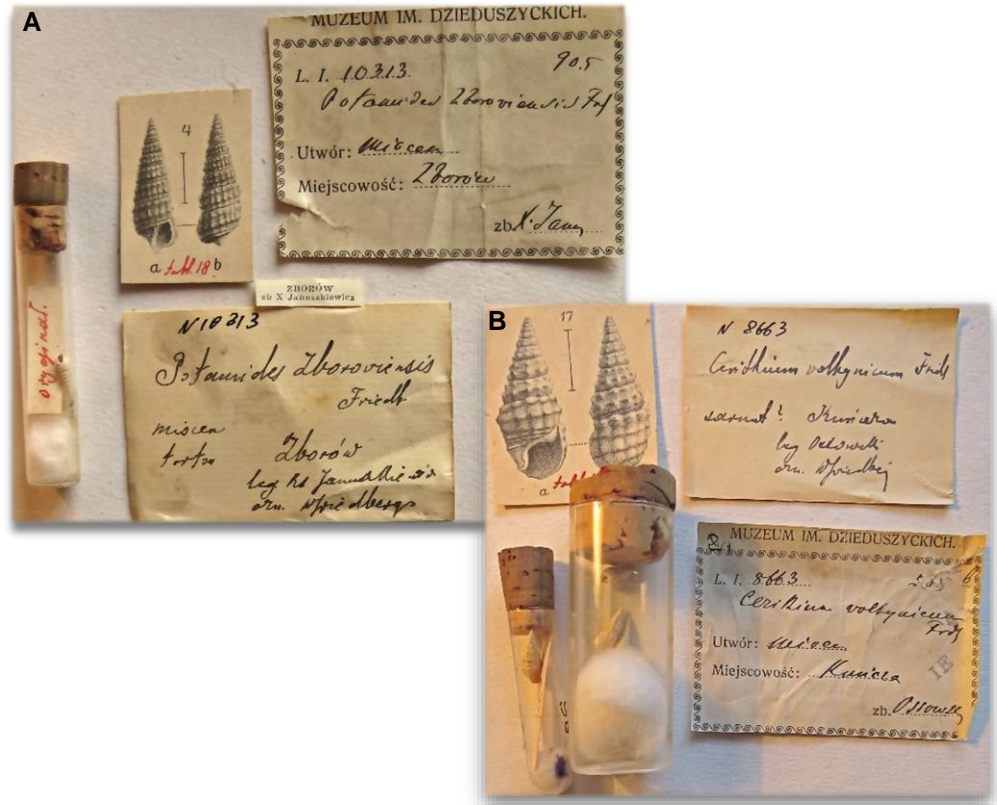 A
MUZEUM IM. DZIEDUSZYCKICH.
L. I. 10313.
905
Potamides Zboroviensis Frd
Utwór: Miocen
Miejscowość: Zborów
zb. X. Jan
4
a tabl. 18 b
oryginał.
ZBORÓW
zb X Januszkiewicz
N 10313
Potamides Zboroviensis
Friedb
miocen
torton
Zborów
leg Ks Januszkiewicz
ozn. WFriedberg
B
17
a
N 8663
Cerithium volhynicum Frdb
sarmat?
leg Ossowski
ozn. WFriedberg
MUZEUM IM. DZIEDUSZYCKICH.
L. I. 8663
Cerithium volhynicum
Frdb
Utwór: Miocen
Miejscowość: Kunicza
zb. Ossowski